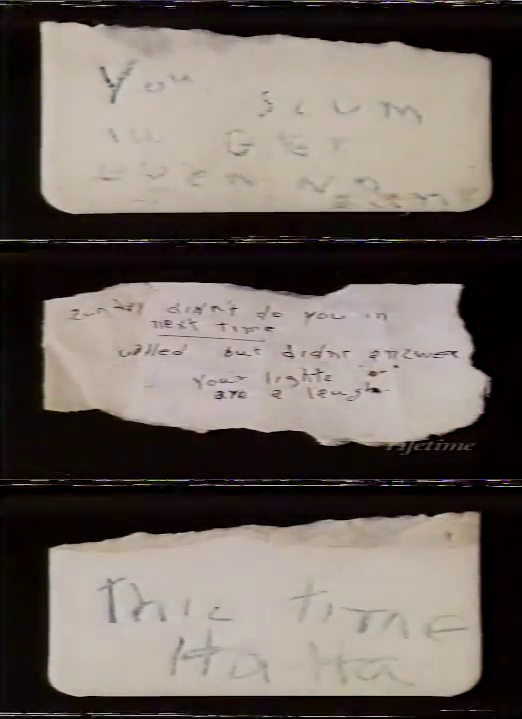 You
SCUM
ILL GET
EVEN
didn't do you in
next time
called but didnt answer
Your lights are on
are a laugh
Lifetime
This time
Ha Ha